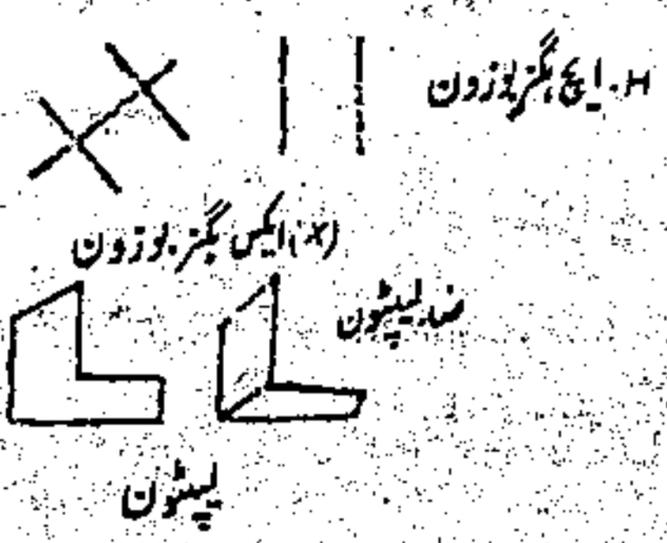 H. ایچ ہگز بوزون
(X) ایکس ہگز بوزون
ضد لیپٹون
لیپٹون